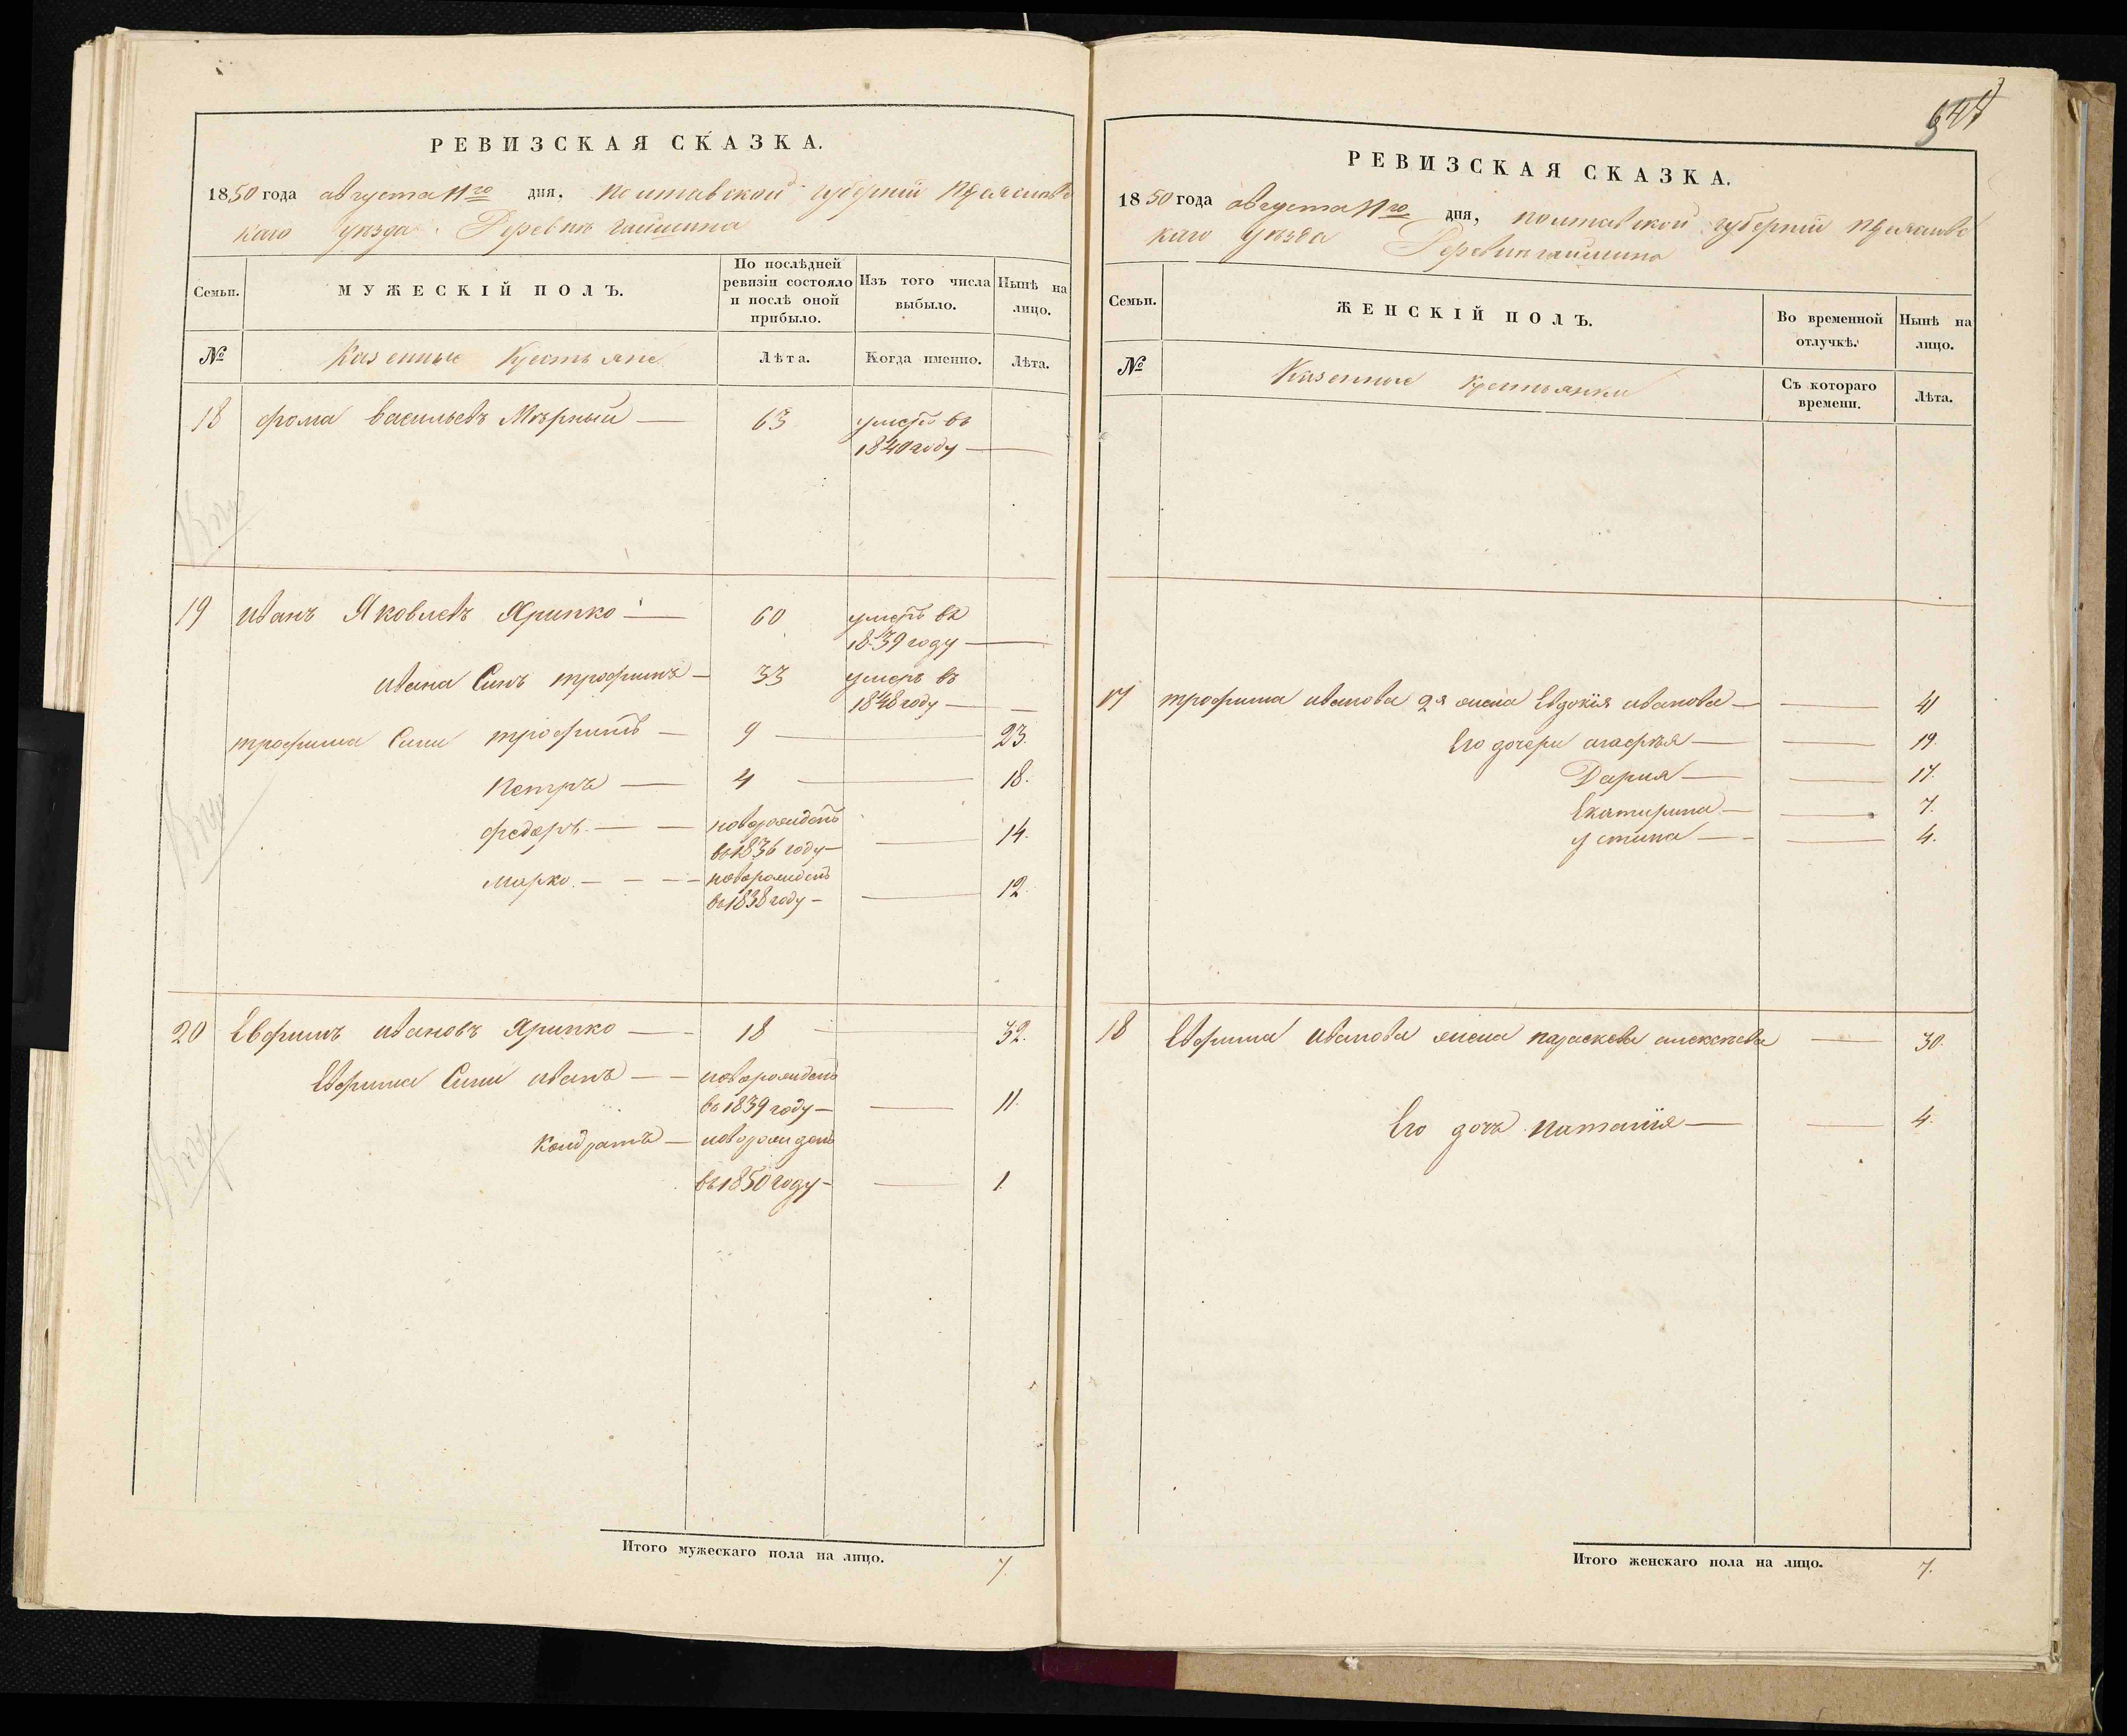 РЕВИЗСКАЯ СКАЗКА.
1850 года августа 11го дня, Полтавской губернии Переяславс
каго уѣзда Деревнѣ гайшина
Семьи.
МУЖЕСКІЙ ПОЛЪ.
По послѣдней ревизіи состояло и послѣ оной прибыло.
Изъ того числа выбыло.
Нынѣ на лицо.
№
Казенные Крестьяне
Лѣта.
Когда именно.
Лѣта.
18 фома васильевъ Мѣрный — 63 умеръ въ
1840 году —
19 иванъ Яковлевъ Яринко — 60 умеръ въ
1839 году —
ивана Синъ трофимъ — 33 умеръ въ
1848 году —
трофима Сини трофимъ — 9 — 23.
Петръ — 4 — 18.
федоръ — новорожденъ
въ 1836 году — 14.
марко — новорожденъ
въ 1838 году — 12.
20 Евфимъ ивановъ Яринко — 18 — 32.
Евфима Сини иванъ — новорожденъ
въ 1839 году — 11.
Кондратъ — новорожденъ
въ 1850 году — 1.
Итого мужескаго пола на лицо. 7.
РЕВИЗСКАЯ СКАЗКА.
1850 года августа 11го дня, полтавской губерніи Переяславс
каго уѣзда Деревни гайшина
Семьи.
ЖЕНСКІЙ ПОЛЪ.
Во временной отлучкѣ.
Нынѣ на лицо.
№
Казенные крестьянки
Съ котораго времени.
Лѣта.
17 трофима иванова 2я жена Евдокія иванова — 41
Его дочери агафья — 19.
Дария — 17.
Екатирина — 7.
устина — 4.
18 Евфима иванова жена параскева алексѣева — 30.
Его дочь наталія — 4.
Итого женскаго пола на лицо. 7.